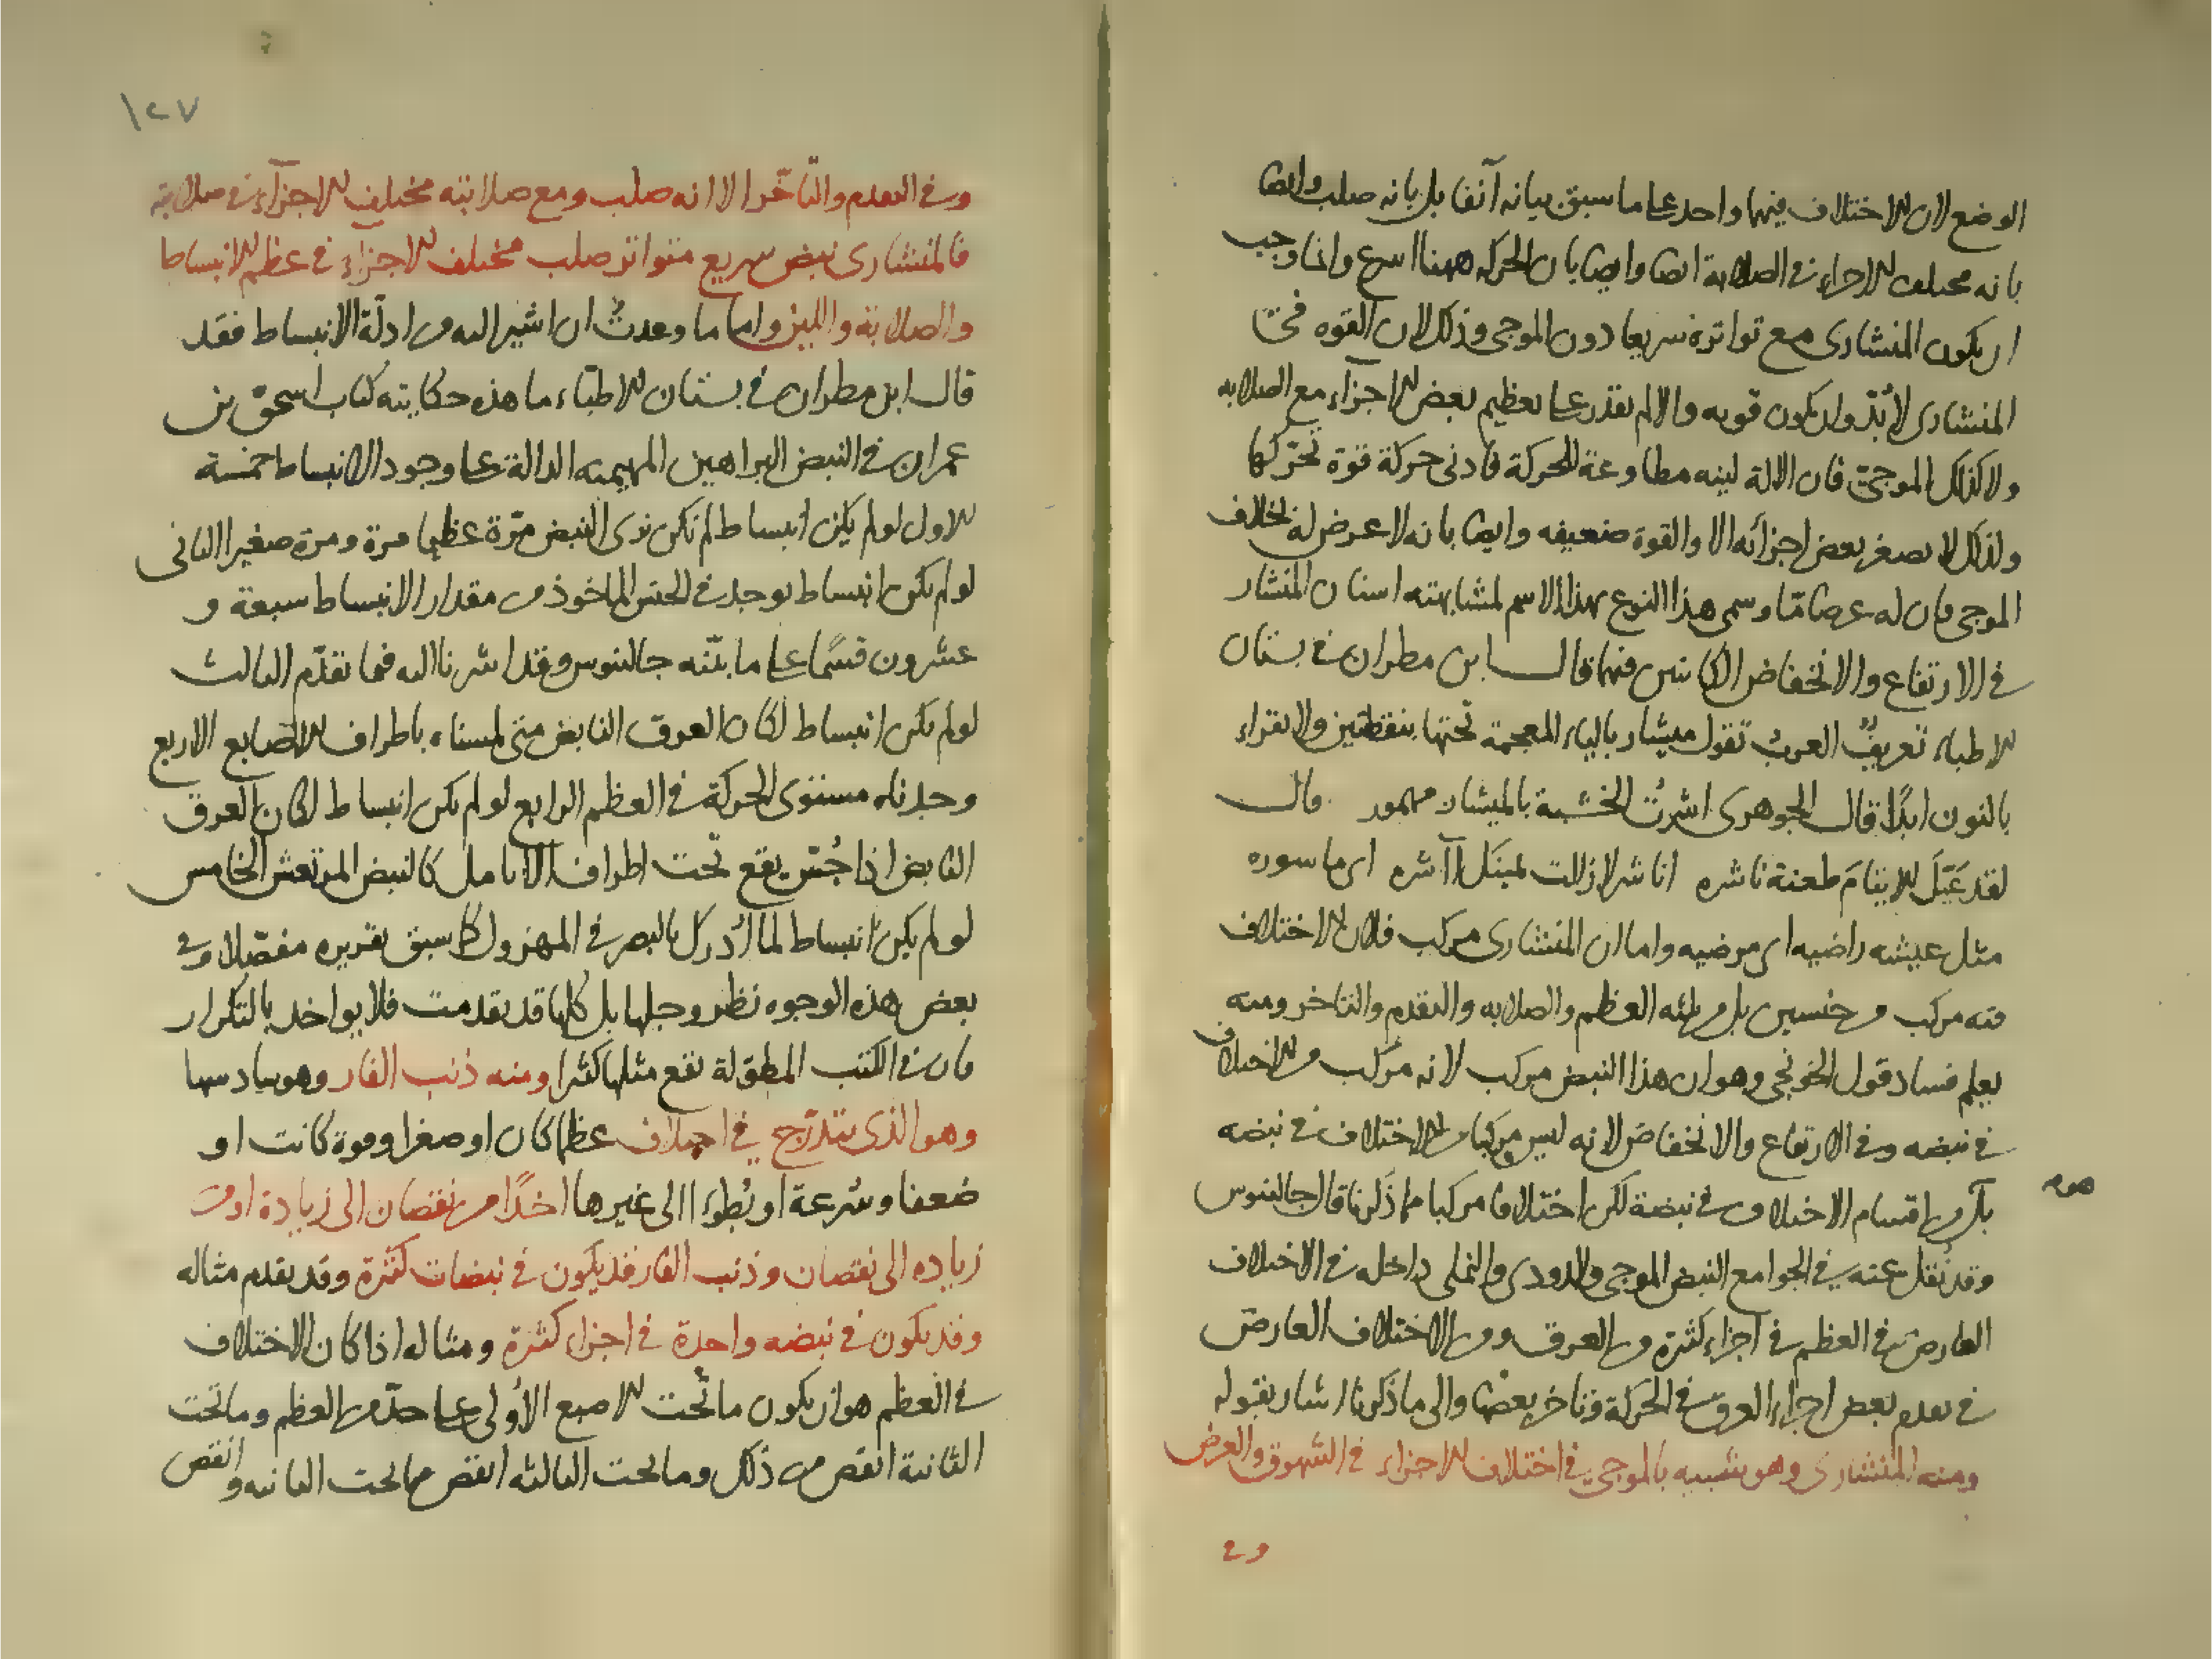 الوضع لان الاختلاف فيهما واحد على ما سبق بيانه آنفا بل بانه صلب وايضا
بانه مختلف الاجزاء في الصلابة ايضا وايضا بان الحركة ههنا اسرع وانما وجب
ان يكون المنشارى مع تواتره سريعا دون الموجى وذلك لان القوه في
المنشارى لابُدّ وان يكون قويه والا لم يقدر على تعظيم بعض الاجزآء مع الصلابه
ولا كذلك الموجىّ فان الالة لينه مطاوعة للحركة فادنى حركة قوة تحرّكها
ولذلك لا يصغر بعض اجزائه الا والقوة ضعيفه وايضا بانه لا عرض له بخلاف
الموجى فان له عرضا مّا وسمى هذا النوع بهذا الاسم لمشابهته اسنان المنشار
في الارتفاع والانخفاض الكاينين فيها قال ابن مطران في بستان
الاطباء تعريفٌ العرب تقول ميشار بالياء المعجمة تحتها بنقطتين ولا يقراء
بالنون ابدًا قال الجوهرى اشرتُ الخشبة بالميشار مهموز قال
لقد عَيَّلَ الايتامَ طعنة ناشره اناشر لا زالت يمينك آشره اى ماسوره
مثل عيشه راضيه اى مرضيه واما ان المنشارى مركب فلان الاختلاف
فيه مركب من جنسين بل من ثلثه العظم والصلابه والتقدم والتاخر ومنه
يعلم فساد قول الخونجى وهو ان هذا النبض مركب لانه مركب من الاختلاف
في نبضه وفي الارتفاع والانخفاض لانه ليس مركبا من الاختلاف في نبضه
بل من اقسام الاختلاف في نبضة لكن اختلافا مركبا مما ذكرنا قال جالينوس
وقد نُقل عنه في الجوامع النبض الموجى والدودى والنملى داخله في الاختلاف
العارض في العظم في اجزاء كثيرة من العرق ومن الاختلاف العارض
في تقدم بعض اجزاء العرق في الحركة وتاخر بعضها والى ما ذكرنا اشار بقوله
ومنه المنشارى وهو شبيه بالموجى في اختلاف الاجزاء في الشهوق والعرض
وفى
١٢٧
وفي التقدم والتأخّر الا انه صلب ومع صلابته مختلف الاجزآء في صلابته
فالمنشارى نبض سريع متواتر صلب مختلف الاجزاء في عظم الانبساط
والصلابة واللين واما ما وعدتُ ان اشير اليه من ادلّة الانبساط فقد
قال ابن مطران في بستان الاطبّاء ما هذه حكايته كتاب اسحق بن
عمران في النبض البراهين المهيمنه الدالة على وجود الانبساط خمسة
الاول لو لم يكن انبساط لم نكن نرى النبض مرّة عظيما مرة ومرة صغيرا الثانى
لو لم يكن انبساط يوجد في الجنس الماخوذ من مقدار الانبساط سبعة و
عشرون قسمًا على ما بيّنه جالينوس وقد اشرنا اليه فيما تقدّم الثالث
لو لم يكن انبساط لكان العرق النابض متى لمسناه باطراف الاصابع الاربع
وجدناه مستوى الحركة في العظم الرابع لو لم يكن انبساط لكان العرق
النابض اذا جُسّ يقع تحت اطراف الانامل كالنبض المرتعش الخامس
لو لم يكن انبساط لما اُدرك بالبصر في المهزول كما سبق تقريره مفصّلا وفي
بعض هذه الوجوه نظر وجلها بل كلها قد تقدمت فلا يواخذ بالتكرار
فان في الكتب المطوّلة تقع مثلها كثيرا ومنه ذنب الفار وهو سادسها
وهو الذى يتدرّج في اختلاف عظما كان او صغرا وقوة كانت او
ضعفا وسُرعة او بُطوءا الى غيرها اخذًا من نقصان الى زيادة او من
زياده الى نقصان وذنب الفار قد يكون في نبضات كثيرة وقد تقدم مثاله
وقد يكون في نبضه واحدة في اجزاء كثيرة ومثاله اذا كان الاختلاف
في العظم هو ان يكون ما تحت الاصبع الاُولى على حدّ من العظم وما تحت
الثانية انقص من ذلك وما تحت الثالثه انقص مما تحت الثانيه وانقص